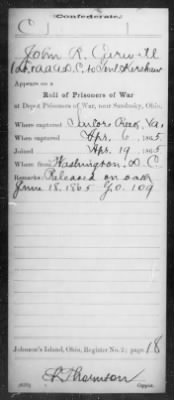 Confederate.
C
John R. Cerwell
1 Lt. A A A D. C. to Genl Kershaw
Appears on a
Roll of Prisoners of War
at Depot Prisoners of War, near Sandusky, Ohio.
Where captured Sailors Creek, Va.
When captured Apr. 6, 1865
Joined Apr. 19, 1865
Where from Washington D. C.
Remarks: Released on oath
June 18, 1865 G.O. 109
Johnson's Island, Ohio, Register No. 2; page 18
Thomson
Copyist.